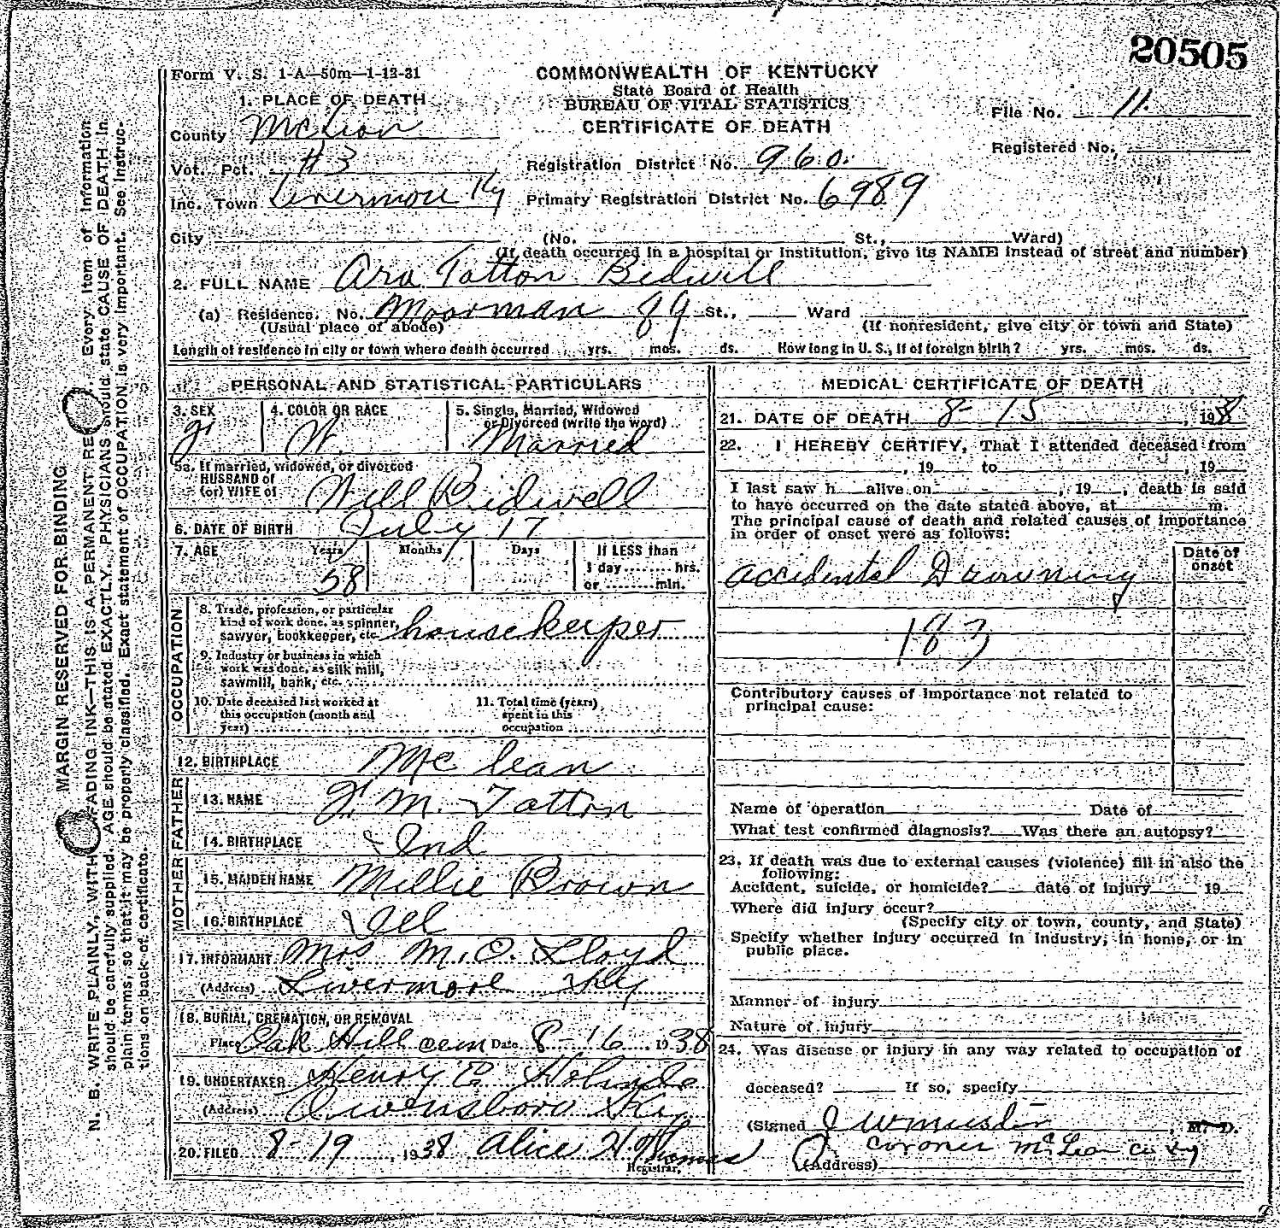 20505
Form V. S. 1-A—50m—1-12-31
COMMONWEALTH OF KENTUCKY
State Board of Health
BUREAU OF VITAL STATISTICS
CERTIFICATE OF DEATH
File No. 11.
Registered No.
1. PLACE OF DEATH
County McLean
Vot. Pct. #3
Registration District No. 960.
Inc. Town Livermore Ky
Primary Registration District No. 6989
City (No. St., Ward)
(If death occurred in a hospital or institution, give its NAME instead of street and number)
2. FULL NAME Ara Tatton Bidwill
(a) Residence. No. Moorman St., Ward
(Usual place of abode) (If nonresident, give city or town and State)
Length of residence in city or town where death occurred yrs. mos. ds. How long in U. S., if of foreign birth? yrs. mos. ds.
PERSONAL AND STATISTICAL PARTICULARS
3. SEX 4. COLOR OR RACE 5. Single, Married, Widowed
or Divorced (write the word)
F W. Married
5a. If married, widowed, or divorced
HUSBAND of
(or) WIFE of Will Bidwell
6. DATE OF BIRTH July 17
7. AGE Years Months Days If LESS than
1 day........ hrs.
58 or ........min.
OCCUPATION
8. Trade, profession, or particular
kind of work done, as spinner,
sawyer, bookkeeper, etc. housekeeper
9. Industry or business in which
work was done, as silk mill,
sawmill, bank, etc.
10. Date deceased last worked at
this occupation (month and
year)
11. Total time (years)
spent in this
occupation
12. BIRTHPLACE McLean
FATHER
13. NAME J. M. Tatton
14. BIRTHPLACE Ind
MOTHER
15. MAIDEN NAME Millie Brown
16. BIRTHPLACE Ill
17. INFORMANT Mrs M. O. Lloyd
(Address) Livermore Ky
18. BURIAL, CREMATION, OR REMOVAL
Place Oak Hill cem Date 8-16 1938
19. UNDERTAKER Henry E
(Address) Owensboro Ky
20. FILED 8-19 1938 Alice H. Thomas
Registrar.
MEDICAL CERTIFICATE OF DEATH
21. DATE OF DEATH 8-15, 1938
22. I HEREBY CERTIFY, That I attended deceased from
, 19 to , 19
I last saw h alive on , 19 , death is said
to have occurred on the date stated above, at m.
The principal cause of death and related causes of importance
in order of onset were as follows:
Date of
onset
accidental Drowning
183
Contributory causes of importance not related to
principal cause:
Name of operation Date of
What test confirmed diagnosis? Was there an autopsy?
23. If death was due to external causes (violence) fill in also the
following:
Accident, suicide, or homicide? date of injury 19
Where did injury occur?
(Specify city or town, county, and State)
Specify whether injury occurred in industry, in home, or in
public place.
Manner of injury
Nature of injury
24. Was disease or injury in any way related to occupation of
deceased? If so, specify
(Signed , M. D.
(Address) coroner McLean co Ky
MARGIN RESERVED FOR BINDING
N. B. WRITE PLAINLY, WITH FADING INK—THIS IS A PERMANENT REC Every item of information
should be carefully supplied. AGE should be stated EXACTLY. PHYSICIANS should state CAUSE OF DEATH in
plain terms, so that it may be properly classified. Exact statement of OCCUPATION is very important. See instruc-
tions on back of certificate.